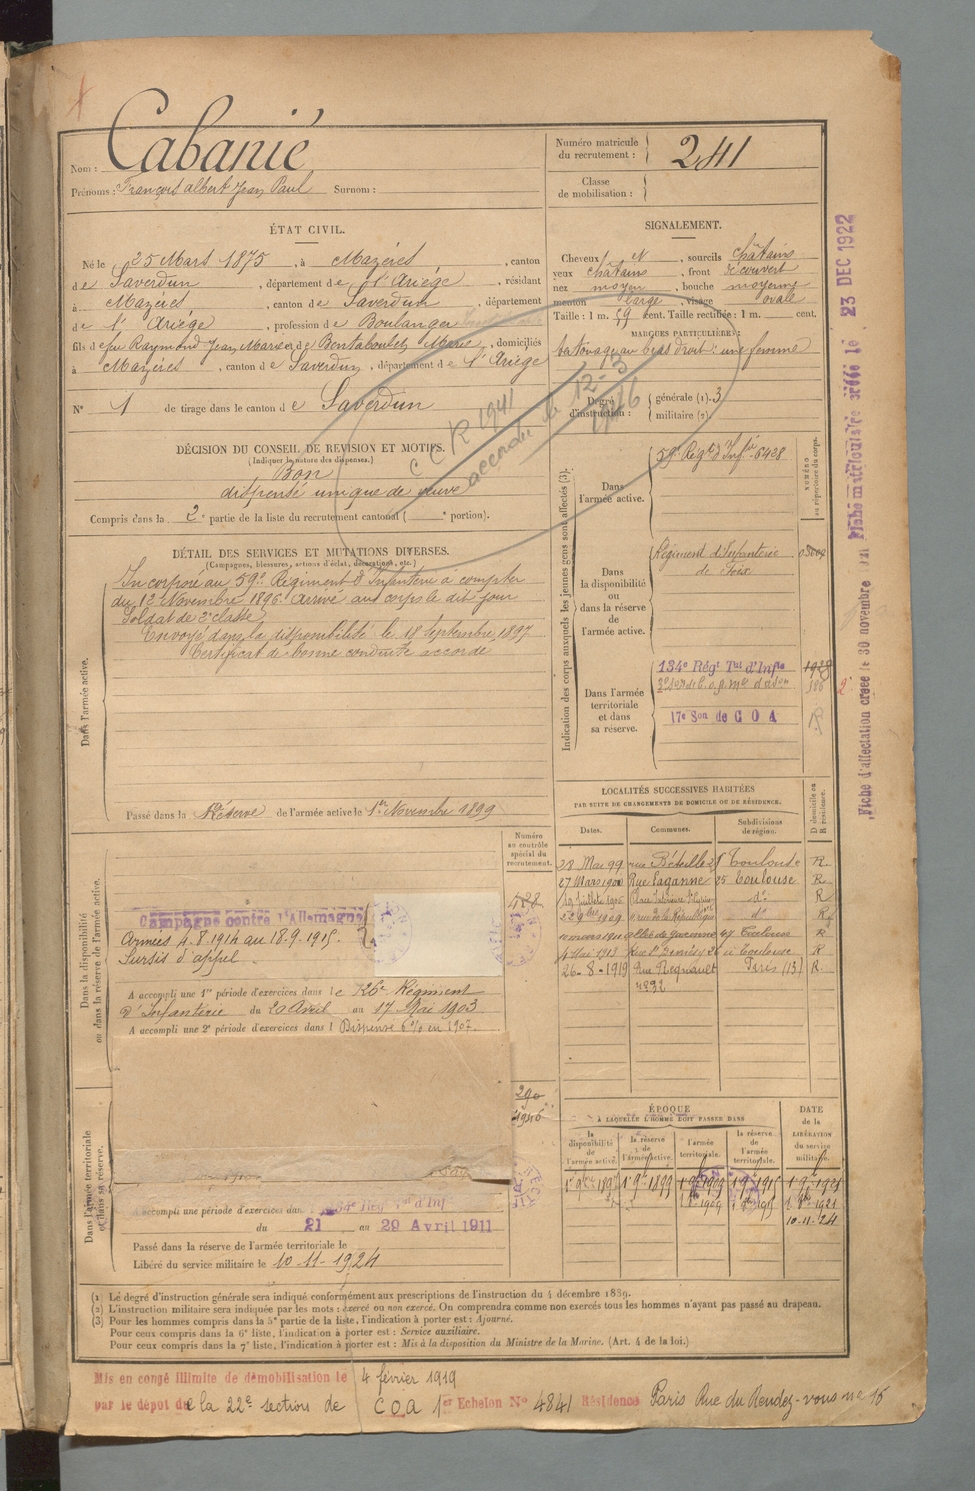 Nom : Cabanié
Prénoms : François Albert Jean Paul Surnom :
Numéro matricule du recrutement : 241
Classe de mobilisation :
ÉTAT CIVIL.
Né le 25 Mars 1875, à Mazères, canton
de Saverdun, département de l'Ariège, résidant
à Mazères, canton de Saverdun, département
de l'Ariège, profession de Boulanger
fils de feu Raymond Jean Marie et de Bentaboulet Marie, domiciliés
à Mazères, canton de Saverdun, département de l'Ariège
N° 1 de tirage dans le canton de Saverdun
SIGNALEMENT.
Cheveux N, sourcils châtains
yeux châtains, front découvert
nez moyen, bouche moyenne
menton large, visage ovale
Taille : 1 m. 59 cent. Taille rectifiée : 1 m. cent.
MARQUES PARTICULIÈRES :
tatouage au bras droit : une femme
Degré d'instruction : générale (1). 3
militaire (2).
C C R 1941
accordu le 12-3
DÉCISION DU CONSEIL DE REVISION ET MOTIFS.
(Indiquer la nature des dispenses.)
Bon
dispensé unique de veuve
Compris dans la 2e partie de la liste du recrutement cantonal ( e portion).
DÉTAIL DES SERVICES ET MUTATIONS DIVERSES.
(Campagnes, blessures, actions d'éclat, décorations, etc.)
Dans l'armée active.
Incorporé au 59e Régiment d'Infanterie à compter
du 12 Novembre 1896. Arrivé au corps le dit jour
Soldat de 2e classe
Envoyé dans la disponibilité le 18 Septembre 1897
Certificat de bonne conduite accordé
Passé dans la Réserve de l'armée active le 1er Novembre 1899
Indication des corps auxquels les jeunes gens sont affectés (3).
NUMÉRO au répertoire du corps.
Dans l'armée active.
59e Régt d'Infie 6428
Dans la disponibilité ou dans la réserve de l'armée active.
Régiment d'Infanterie
de Foix
Dans l'armée territoriale et dans sa réserve.
134e Régt Tal d'Infie 1928
17e Son de C O A
LOCALITÉS SUCCESSIVES HABITÉES
PAR SUITE DE CHANGEMENTS DE DOMICILE OU DE RÉSIDENCE.
Dates. Communes. Subdivisions de région. D domicile ou R résidence.
28 Mai 99 rue Béteille 28 Toulouse R
27 Mars 1900 Rue Laganne 25 Toulouse R
d° R
d° R
10 mars 1911 allée de Garonne 47 Toulouse R
4 Mai 1913 Toulouse R
26-8-1919 Rue Regnault Paris (13) R
Numéro au contrôle spécial du recrutement.
Dans la disponibilité ou dans la réserve de l'armée active.
Campagne contre l'Allemagne
Armées 4.8.1914 au 18.9.1915.
Sursis d'appel
A accompli une 1re période d'exercices dans le 126e Régiment
d'Infanterie du 20 Avril au 17 Mai 1903
A accompli une 2e période d'exercices dans l Dispensé 6% en 1907.
290
Dans l'armée territoriale et dans sa réserve.
accompli une période d'exercices dans 134e Régt Tal d'Inf
du 21 au 29 Avril 1911
Passé dans la réserve de l'armée territoriale le
Libéré du service militaire le 10-11-1924
ÉPOQUE
A LAQUELLE L'HOMME DOIT PASSER DANS
la disponibilité de l'armée active. la réserve de l'armée active. l'armée territoriale. la réserve de l'armée territoriale.
DATE de la LIBÉRATION du service militaire.
10-11-24
(1) Le degré d'instruction générale sera indiqué conformément aux prescriptions de l'instruction du 4 décembre 1889.
(2) L'instruction militaire sera indiquée par les mots : exercé ou non exercé. On comprendra comme non exercés tous les hommes n'ayant pas passé au drapeau.
(3) Pour les hommes compris dans la 5e partie de la liste, l'indication à porter est : Ajourné.
Pour ceux compris dans la 6e liste, l'indication à porter est : Service auxiliaire.
Pour ceux compris dans la 7e liste, l'indication à porter est : Mis à la disposition du Ministre de la Marine. (Art. 4 de la loi.)
Mis en congé illimité de démobilisation le 4 février 1919
par le dépôt de la 22e section de COA 1er Echelon N° 4841 Résidence Paris Rue du Rendez-vous n° 15
Fiche d'affectation créée le 30 novembre
Fiche matriculaire créée le 23 DEC 1922